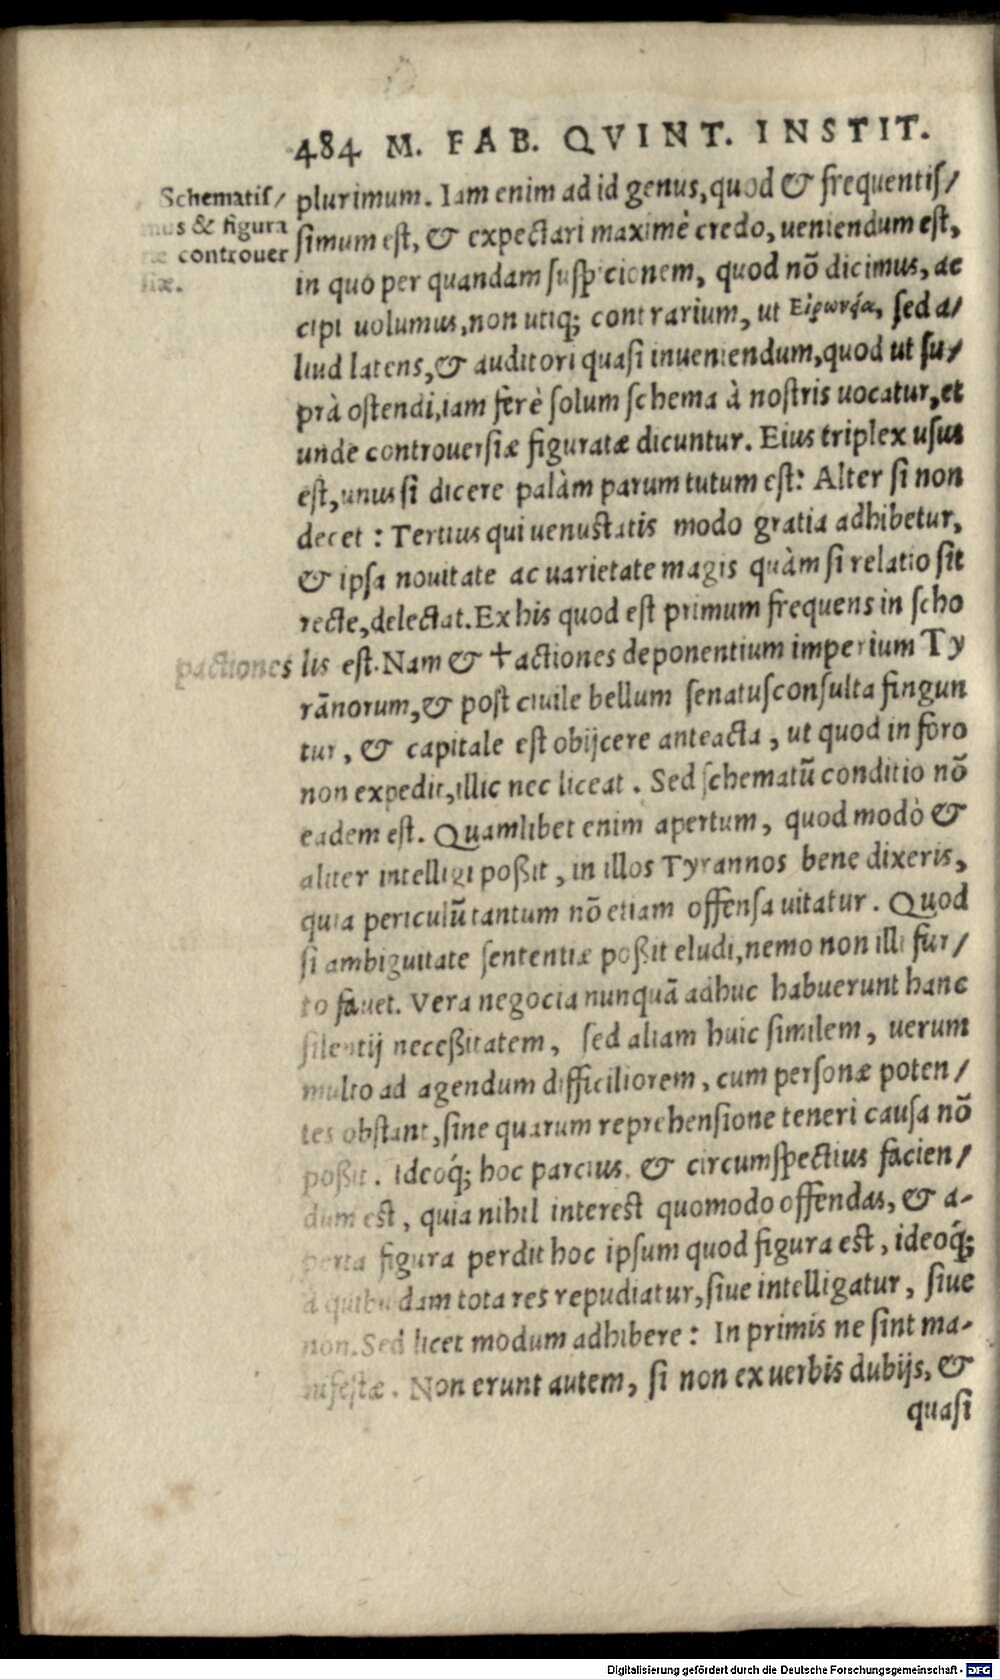 484 M. FAB. QVINT. INSTIT.
Schematiſ/
mus & figura
controuer
ſiæ.
plurimum. Iam enim ad id genus, quod & frequentiſ/
ſimum eſt, & expectari maximè credo, ueniendum eſt,
in quo per quandam ſuſpicionem, quod nō dicimus, ac
cipi uolumus, non utiq; contrarium, ut Εἰρωνεία, ſed a/
liud latens, & auditori quaſi inueniendum, quod ut ſu/
prà oſtendi, iam ferè ſolum ſchema à noſtris uocatur, et
unde controuerſiæ figuratæ dicuntur. Eius triplex uſus
eſt, unus ſi dicere palàm parum tutum eſt: Alter ſi non
decet : Tertius qui uenuſtatis modo gratia adhibetur,
& ipſa nouitate ac uarietate magis quàm ſi relatio ſit
recte, delectat. Ex his quod eſt primum frequens in ſcho
pactiones
lis eſt. Nam & +actiones deponentium imperium Ty
rānorum, & poſt ciuile bellum ſenatuſconſulta fingun
tur, & capitale eſt obijcere anteacta, ut quod in foro
non expedit, illic nec liceat. Sed ſchematū conditio nō
eadem eſt. Quamlibet enim apertum, quod modò &
aliter intelligi poßit, in illos Tyrannos bene dixeris,
quia periculū tantum nō etiam offenſa uitatur. Quod
ſi ambiguitate ſententiæ poßit eludi, nemo non illi fur/
to fauet. Vera negocia nunquā adhuc habuerunt hanc
ſilentij neceßitatem, ſed aliam huic ſimilem, uerum
multo ad agendum difficiliorem, cum perſonæ poten/
tes obſtant, ſine quarum reprehenſione teneri cauſa nō
poßit. Ideoq́; hoc parcius, & circumſpectius facien/
dum eſt, quia nihil intereſt quomodo offendas, & a-
perta figura perdit hoc ipſum quod figura eſt, ideoq́;
à quibuſdam tota res repudiatur, ſiue intelligatur, ſiue
non. Sed licet modum adhibere : In primis ne ſint ma-
nifeſtæ. Non erunt autem, ſi non ex uerbis dubijs, &
quaſi
Digitalisierung gefördert durch die Deutsche Forschungsgemeinschaft - DFG